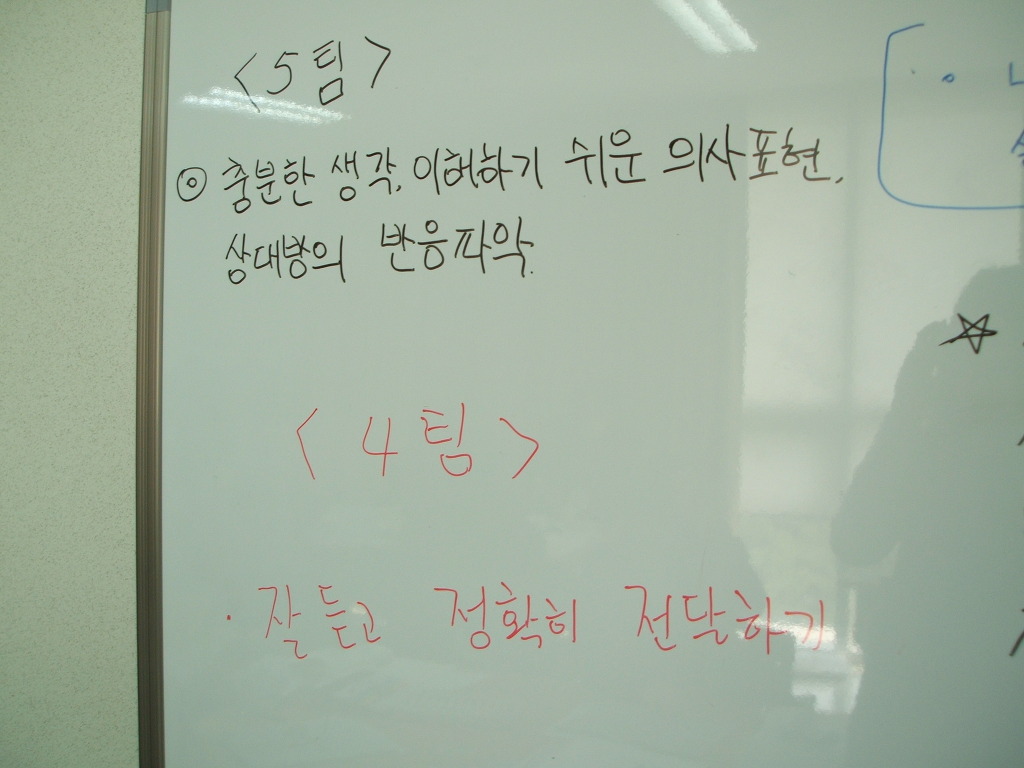 <5팀>
◎ 충분한 생각, 이허하기 쉬운 의사표현,
상대방의 반응파악.
<4팀>
· 잘 듣고 정확히 전달하기